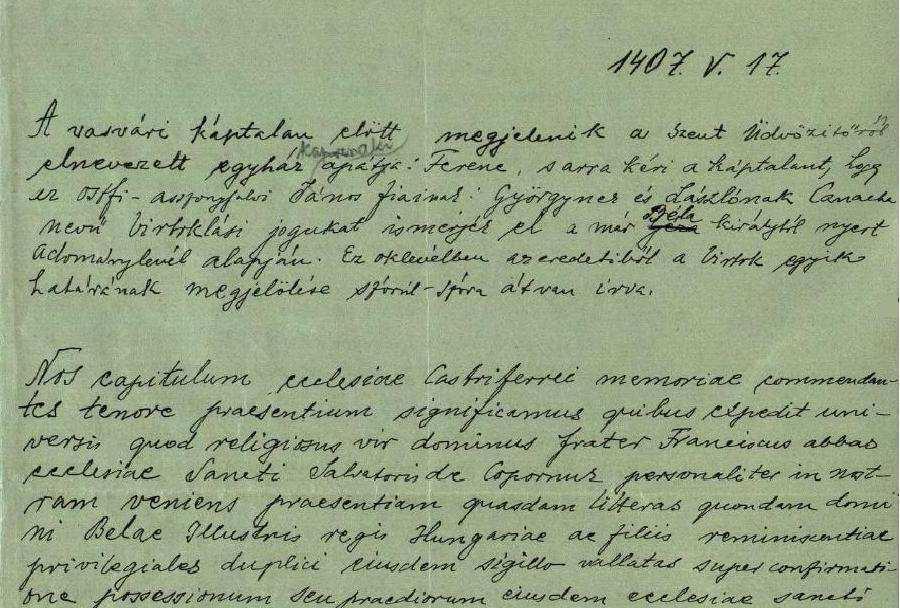 1407. V. 17.
A vasvári káptalan előtt megjelenik a Szent Üdvözítőről
kapornaki
elnevezett egyház apátja: Ferenc, s arra kéri a káptalant, hogy
az Ostfi-asszonyfalvi János fiainak: Györgynek és Lászlónak Canacha
Béla
nevű birtoklási jogukat ismerjék el a már királytól nyert
adománylevél alapján. Ez oklevélben az eredetiből a birtok egyik
határának megjelölése szóról-szóra átvan irva.
Nos capitulum ecclesiae Castriferrei memoriae commendan-
tes tenore praesentium significamus quibus expedit uni-
versis quod religiosus vir dominus frater Franciscus abbas
ecclesiae Sancti Salvatoris de Copornuk personaliter in nost-
ram veniens praesentiam quasdam litteras quondam domi
ni Belae Illustris regis Hungariae ac filiis reminiscentiae
privilegiales duplici eiusdem sigillo vallatas super confirmati-
one possessionum seu praediorum eiusdem ecclesiae sancti